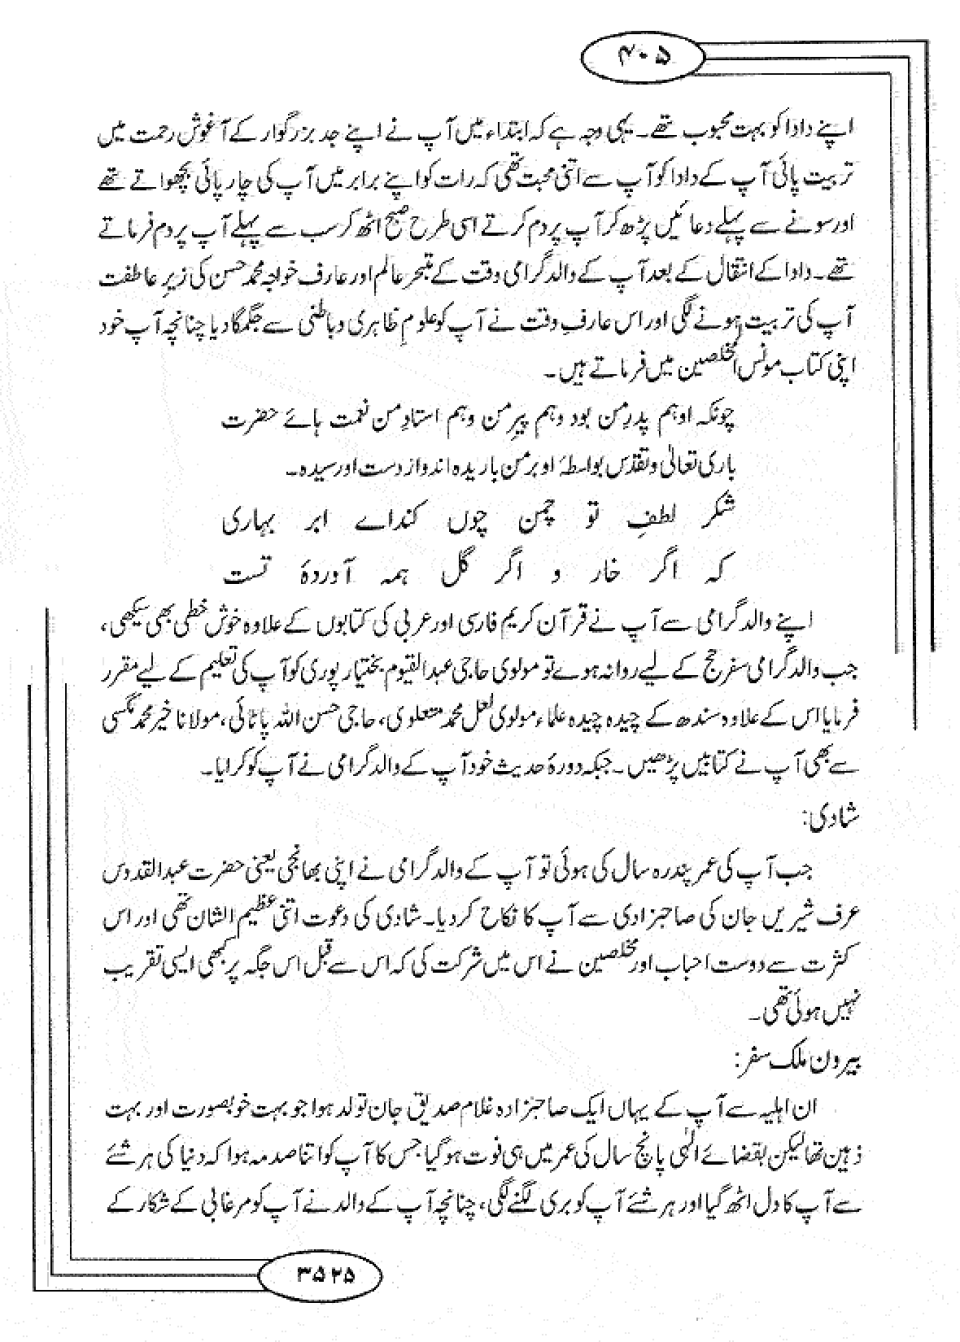 ۴۰۵
اپنے دادا کو بہت محبوب تھے۔ یہی وجہ ہے کہ ابتداء میں آپ نے اپنے جد بزرگوار کے آغوش رحمت میں
تربیت پائی آپ کے دادا کو آپ سے اتنی محبت تھی کہ رات کو اپنے برابر میں آپ کی چارپائی بچھواتے تھے
اور سونے سے پہلے دعائیں پڑھ کر آپ پر دم کرتے اسی طرح صبح اٹھ کر سب سے پہلے آپ پر دم فرماتے
تھے۔ دادا کے انتقال کے بعد آپ کے والد گرامی وقت کے متبحر عالم اور عارف خواجہ محمد حسن کی زیرِ عاطفت
آپ کی تربیت ہونے لگی اور اس عارفِ وقت نے آپ کو علومِ ظاہری و باطنی سے جگمگا دیا چنانچہ آپ خود
اپنی کتاب مونس المخلصین میں فرماتے ہیں۔
چونکہ اوہم پدرِمن بود وہم پیرِمن وہم استادِمن نعمت ہائے حضرت
باری تعالیٰ وتقدس بواسطۂ او برمن باریدہ اندواز دست اورسیدہ۔
شکر لطفِ تو چمن چوں کنداے ابر بہاری
کہ اگر خار و اگر گل ہمہ آوردۂ تست
اپنے والد گرامی سے آپ نے قرآن کریم فارسی اور عربی کی کتابوں کے علاوہ خوش خطی بھی سیکھی،
جب والد گرامی سفر حج کے لیے روانہ ہوے تو مولوی حاجی عبدالقیوم بختیار پوری کو آپ کی تعلیم کے لیے مقرر
فرمایا اس کے علاوہ سندھ کے چیدہ چیدہ علماء مولوی لعل محمد متعلوی، حاجی حسن اللہ پاٹائی، مولانا خیر محمد مگسی
سے بھی آپ نے کتابیں پڑھیں۔ جبکہ دورۂ حدیث خود آپ کے والد گرامی نے آپ کو کرایا۔
شادی:
جب آپ کی عمر پندرہ سال کی ہوئی تو آپ کے والد گرامی نے اپنی بھانجی یعنی حضرت عبدالقدوس
عرف شیریں جان کی صاحبزادی سے آپ کا نکاح کر دیا۔ شادی کی دعوت اتنی عظیم الشان تھی اور اس
کثرت سے دوست احباب اور مخلصین نے اس میں شرکت کی کہ اس سے قبل اس جگہ پر کبھی ایسی تقریب
نہیں ہوئی تھی۔
بیرون ملک سفر:
ان اہلیہ سے آپ کے یہاں ایک صاحبزادہ غلام صدیق جان تولد ہوا جو بہت خوبصورت اور بہت
ذہین تھا لیکن بقضائے الٰہی پانچ سال کی عمر میں ہی فوت ہو گیا جس کا آپ کو اتنا صدمہ ہوا کہ دنیا کی ہر شئے
سے آپ کا دل اٹھ گیا اور ہر شئے آپ کو بری لگنے لگی، چنانچہ آپ کے والد نے آپ کو مرغابی کے شکار کے
۳۵۲۵